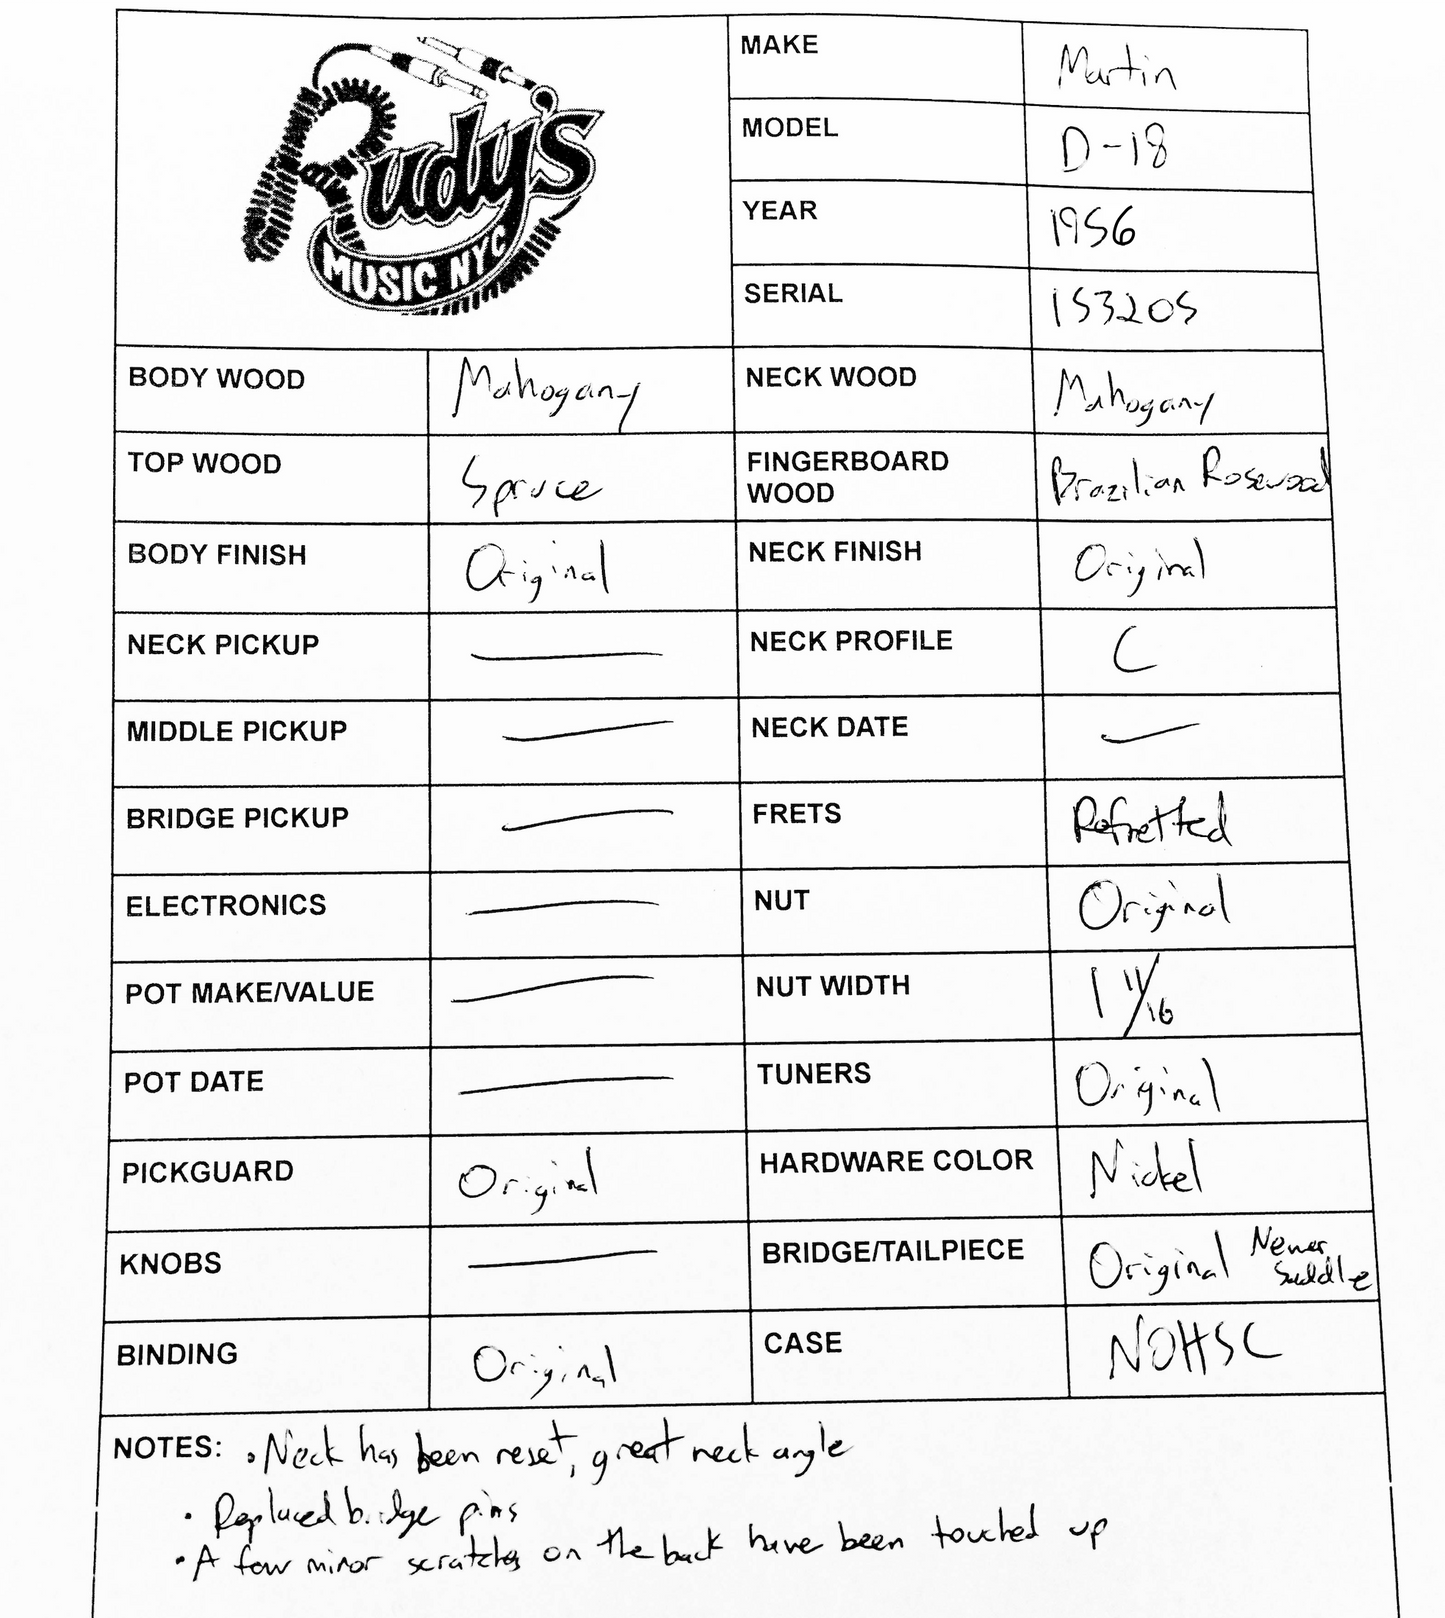 Rudy's
MUSIC NYC
MAKE Martin
MODEL D-18
YEAR 1956
SERIAL 153205
BODY WOOD Mahogany NECK WOOD Mahogany
TOP WOOD Spruce FINGERBOARD
WOOD Brazilian Rosewood
BODY FINISH Original NECK FINISH Original
NECK PICKUP — NECK PROFILE C
MIDDLE PICKUP — NECK DATE —
BRIDGE PICKUP — FRETS Refretted
ELECTRONICS — NUT Original
POT MAKE/VALUE — NUT WIDTH 1 11/16
POT DATE — TUNERS Original
PICKGUARD Original HARDWARE COLOR Nickel
KNOBS — BRIDGE/TAILPIECE Original Newer
Saddle
BINDING Original CASE NOHSC
NOTES: • Neck has been reset, great neck angle
• Replaced bridge pins
• A few minor scratches on the back have been touched up